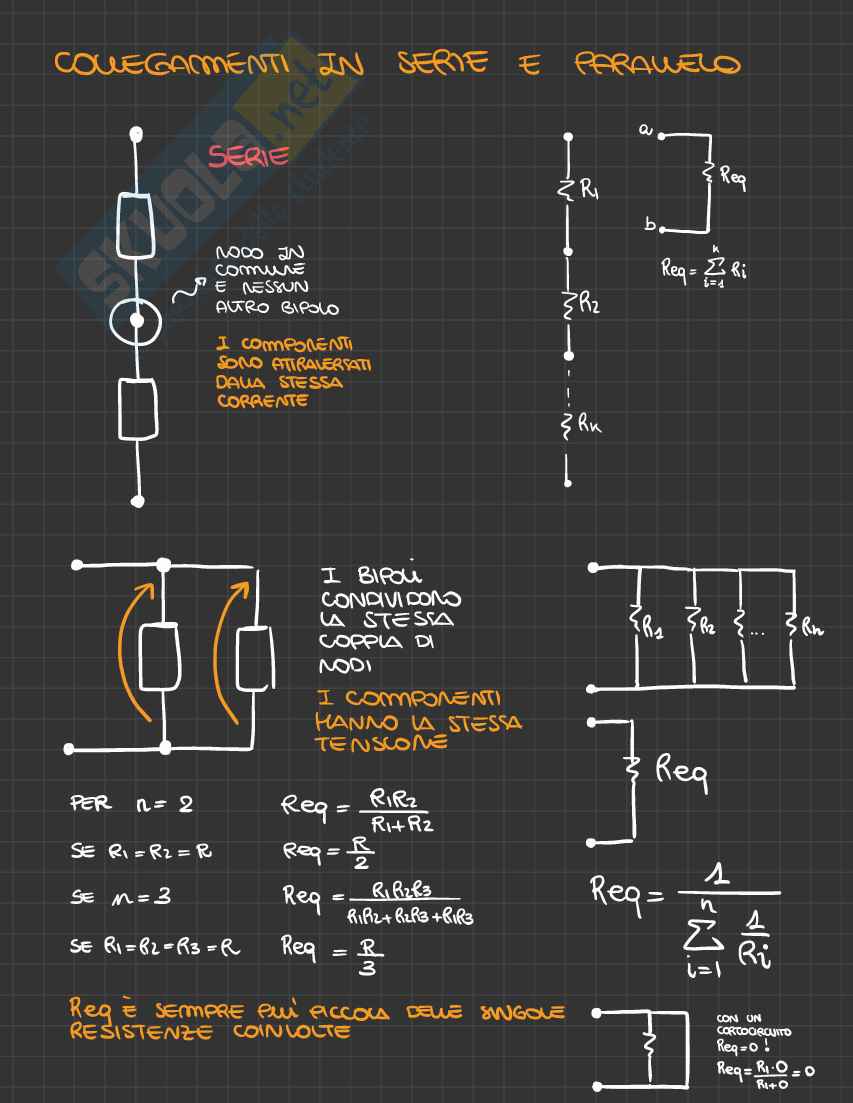 COLLEGAMENTI IN SERIE E PARALLELO
SKUOLA.net
SERIE
NODO IN
COMUNE
E NESSUN
ALTRO BIPOLO
I COMPONENTI
SONO ATTRAVERSATI
DALLA STESSA
CORRENTE
R1
R2
Rk
a
Req
b
Req = Σ_{i=1}^{k} Ri
I BIPOLI
CONDIVIDONO
LA STESSA
COPPIA DI
NODI
I COMPONENTI
HANNO LA STESSA
TENSIONE
R1 R2 ... Rn
Req
PER n = 2 Req = R1R2 / (R1+R2)
SE R1 = R2 = R Req = R/2
SE n = 3 Req = R1R2R3 / (R1R2+R2R3+R1R3)
SE R1 = R2 = R3 = R Req = R/3
Req = 1 / Σ_{i=1}^{n} 1/Ri
Req È SEMPRE PIÙ PICCOLA DELLE SINGOLE
RESISTENZE COINVOLTE
CON UN
CORTOCIRCUITO
Req = 0 !
Req = R1·0 / (R1+0) = 0